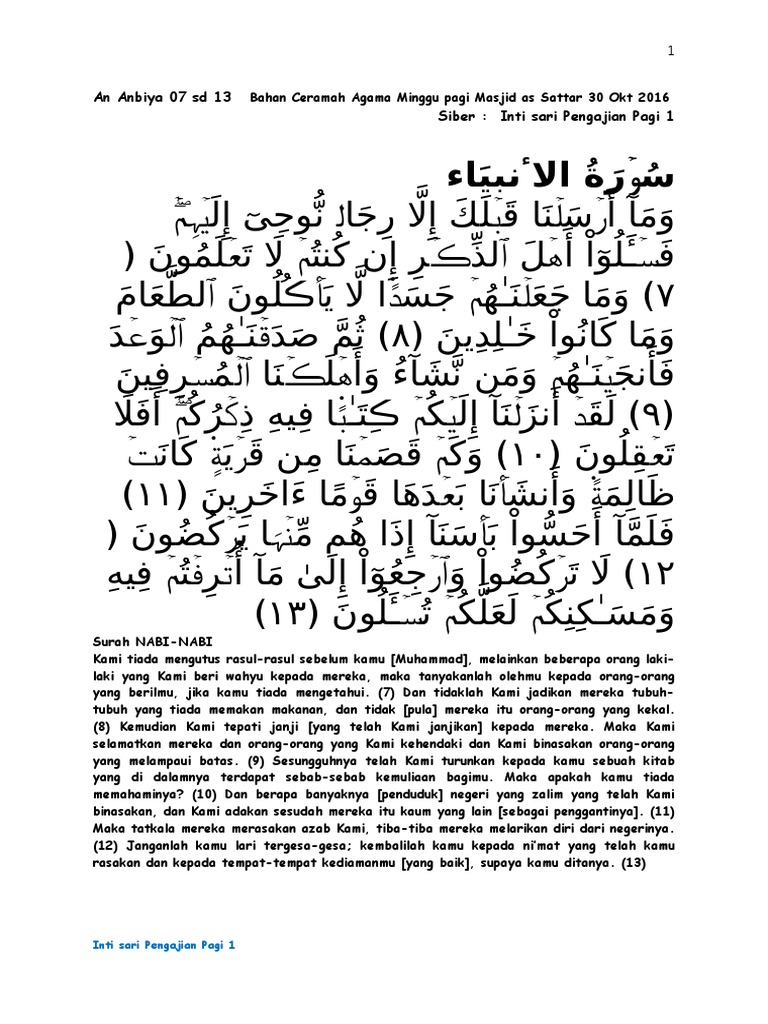 1
An Anbiya 07 sd 13 Bahan Ceramah Agama Minggu pagi Masjid as Sattar 30 Okt 2016
Siber : Inti sari Pengajian Pagi 1
سُوۡرَةُ الاٴنبیَاء
وَمَآ أَرۡسَلۡنَا قَبۡلَكَ إِلَّا رِجَالاً۬ نُّوحِىٓ إِلَيۡہِمۡ‌ۖ
فَسۡـَٔلُوٓاْ أَهۡلَ ٱلذِّڪۡرِ إِن كُنتُمۡ لَا تَعۡلَمُونَ (
٧) وَمَا جَعَلۡنَـٰهُمۡ جَسَدً۬ا لَّا يَأۡڪُلُونَ ٱلطَّعَامَ
وَمَا كَانُواْ خَـٰلِدِينَ (٨) ثُمَّ صَدَقۡنَـٰهُمُ ٱلۡوَعۡدَ
فَأَنجَيۡنَـٰهُمۡ وَمَن نَّشَآءُ وَأَهۡلَڪۡنَا ٱلۡمُسۡرِفِينَ
(٩) لَقَدۡ أَنزَلۡنَآ إِلَيۡكُمۡ ڪِتَـٰبً۬ا فِيهِ ذِكۡرُكُمۡ‌ۖ أَفَلَا
تَعۡقِلُونَ (١٠) وَكَمۡ قَصَمۡنَا مِن قَرۡيَةٍ۬ كَانَتۡ
ظَالِمَةً۬ وَأَنشَأۡنَا بَعۡدَهَا قَوۡمًا ءَاخَرِينَ (١١)
فَلَمَّآ أَحَسُّواْ بَأۡسَنَآ إِذَا هُم مِّنۡہَا يَرۡكُضُونَ (
١٢) لَا تَرۡكُضُواْ وَٱرۡجِعُوٓاْ إِلَىٰ مَآ أُتۡرِفۡتُمۡ فِيهِ
وَمَسَـٰكِنِكُمۡ لَعَلَّكُمۡ تُسۡـَٔلُونَ (١٣)
Surah NABI-NABI
Kami tiada mengutus rasul-rasul sebelum kamu [Muhammad], melainkan beberapa orang laki-
laki yang Kami beri wahyu kepada mereka, maka tanyakanlah olehmu kepada orang-orang
yang berilmu, jika kamu tiada mengetahui. (7) Dan tidaklah Kami jadikan mereka tubuh-
tubuh yang tiada memakan makanan, dan tidak [pula] mereka itu orang-orang yang kekal.
(8) Kemudian Kami tepati janji [yang telah Kami janjikan] kepada mereka. Maka Kami
selamatkan mereka dan orang-orang yang Kami kehendaki dan Kami binasakan orang-orang
yang melampaui batas. (9) Sesungguhnya telah Kami turunkan kepada kamu sebuah kitab
yang di dalamnya terdapat sebab-sebab kemuliaan bagimu. Maka apakah kamu tiada
memahaminya? (10) Dan berapa banyaknya [penduduk] negeri yang zalim yang telah Kami
binasakan, dan Kami adakan sesudah mereka itu kaum yang lain [sebagai penggantinya]. (11)
Maka tatkala mereka merasakan azab Kami, tiba-tiba mereka melarikan diri dari negerinya.
(12) Janganlah kamu lari tergesa-gesa; kembalilah kamu kepada ni'mat yang telah kamu
rasakan dan kepada tempat-tempat kediamanmu [yang baik], supaya kamu ditanya. (13)
Inti sari Pengajian Pagi 1